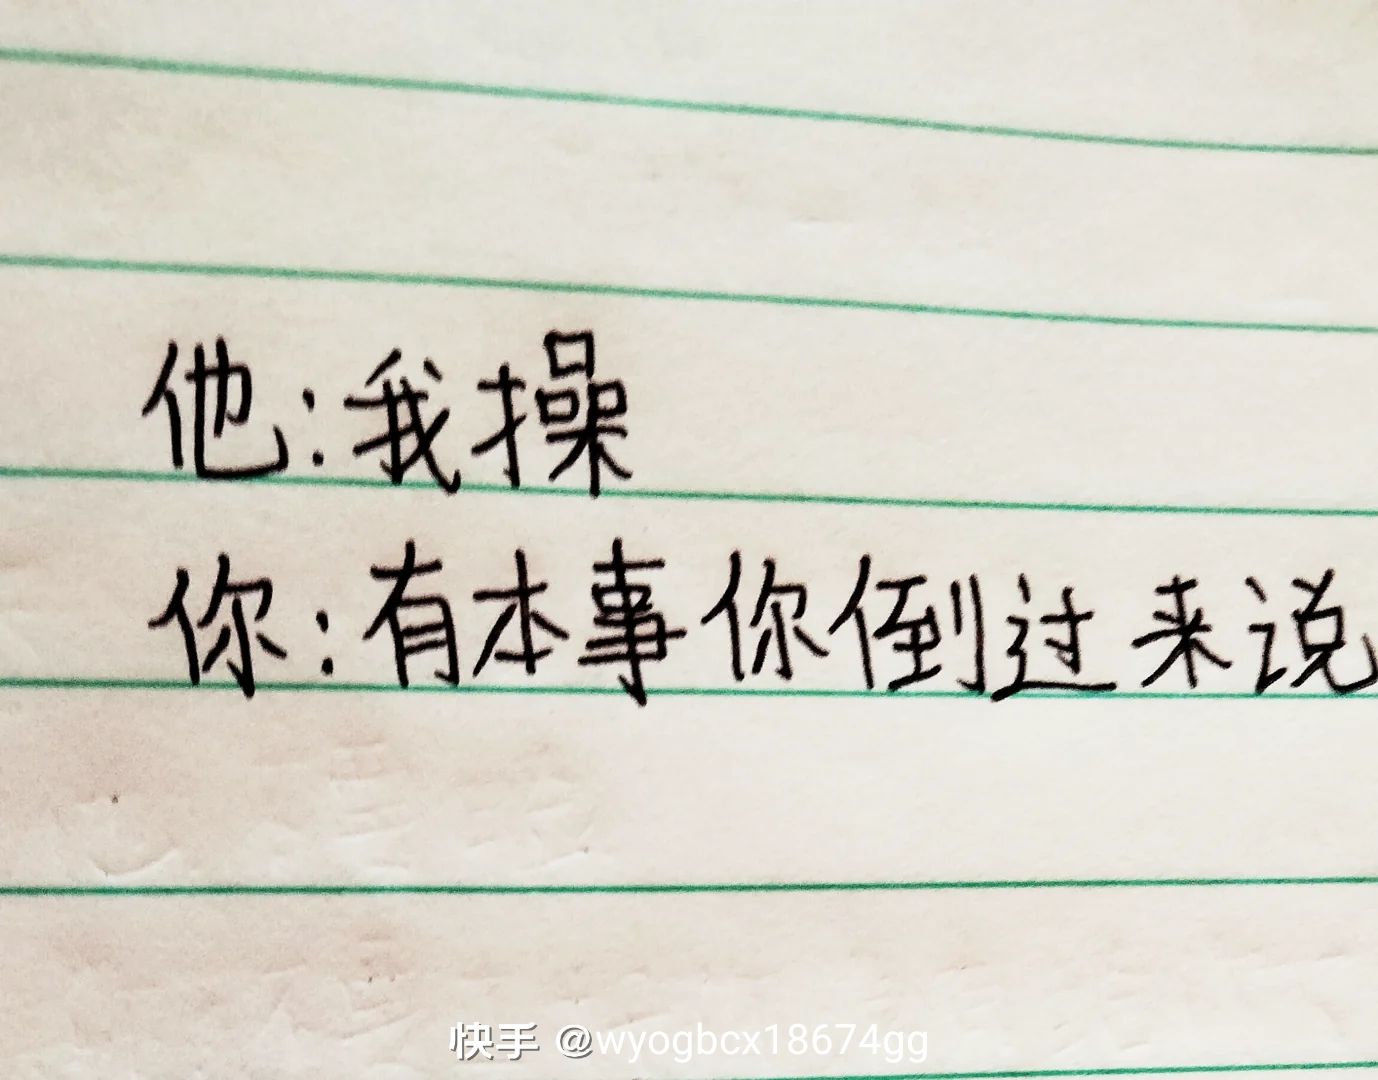 他:我操
你:有本事你倒过来说
快手 @wyogbcx18674gg